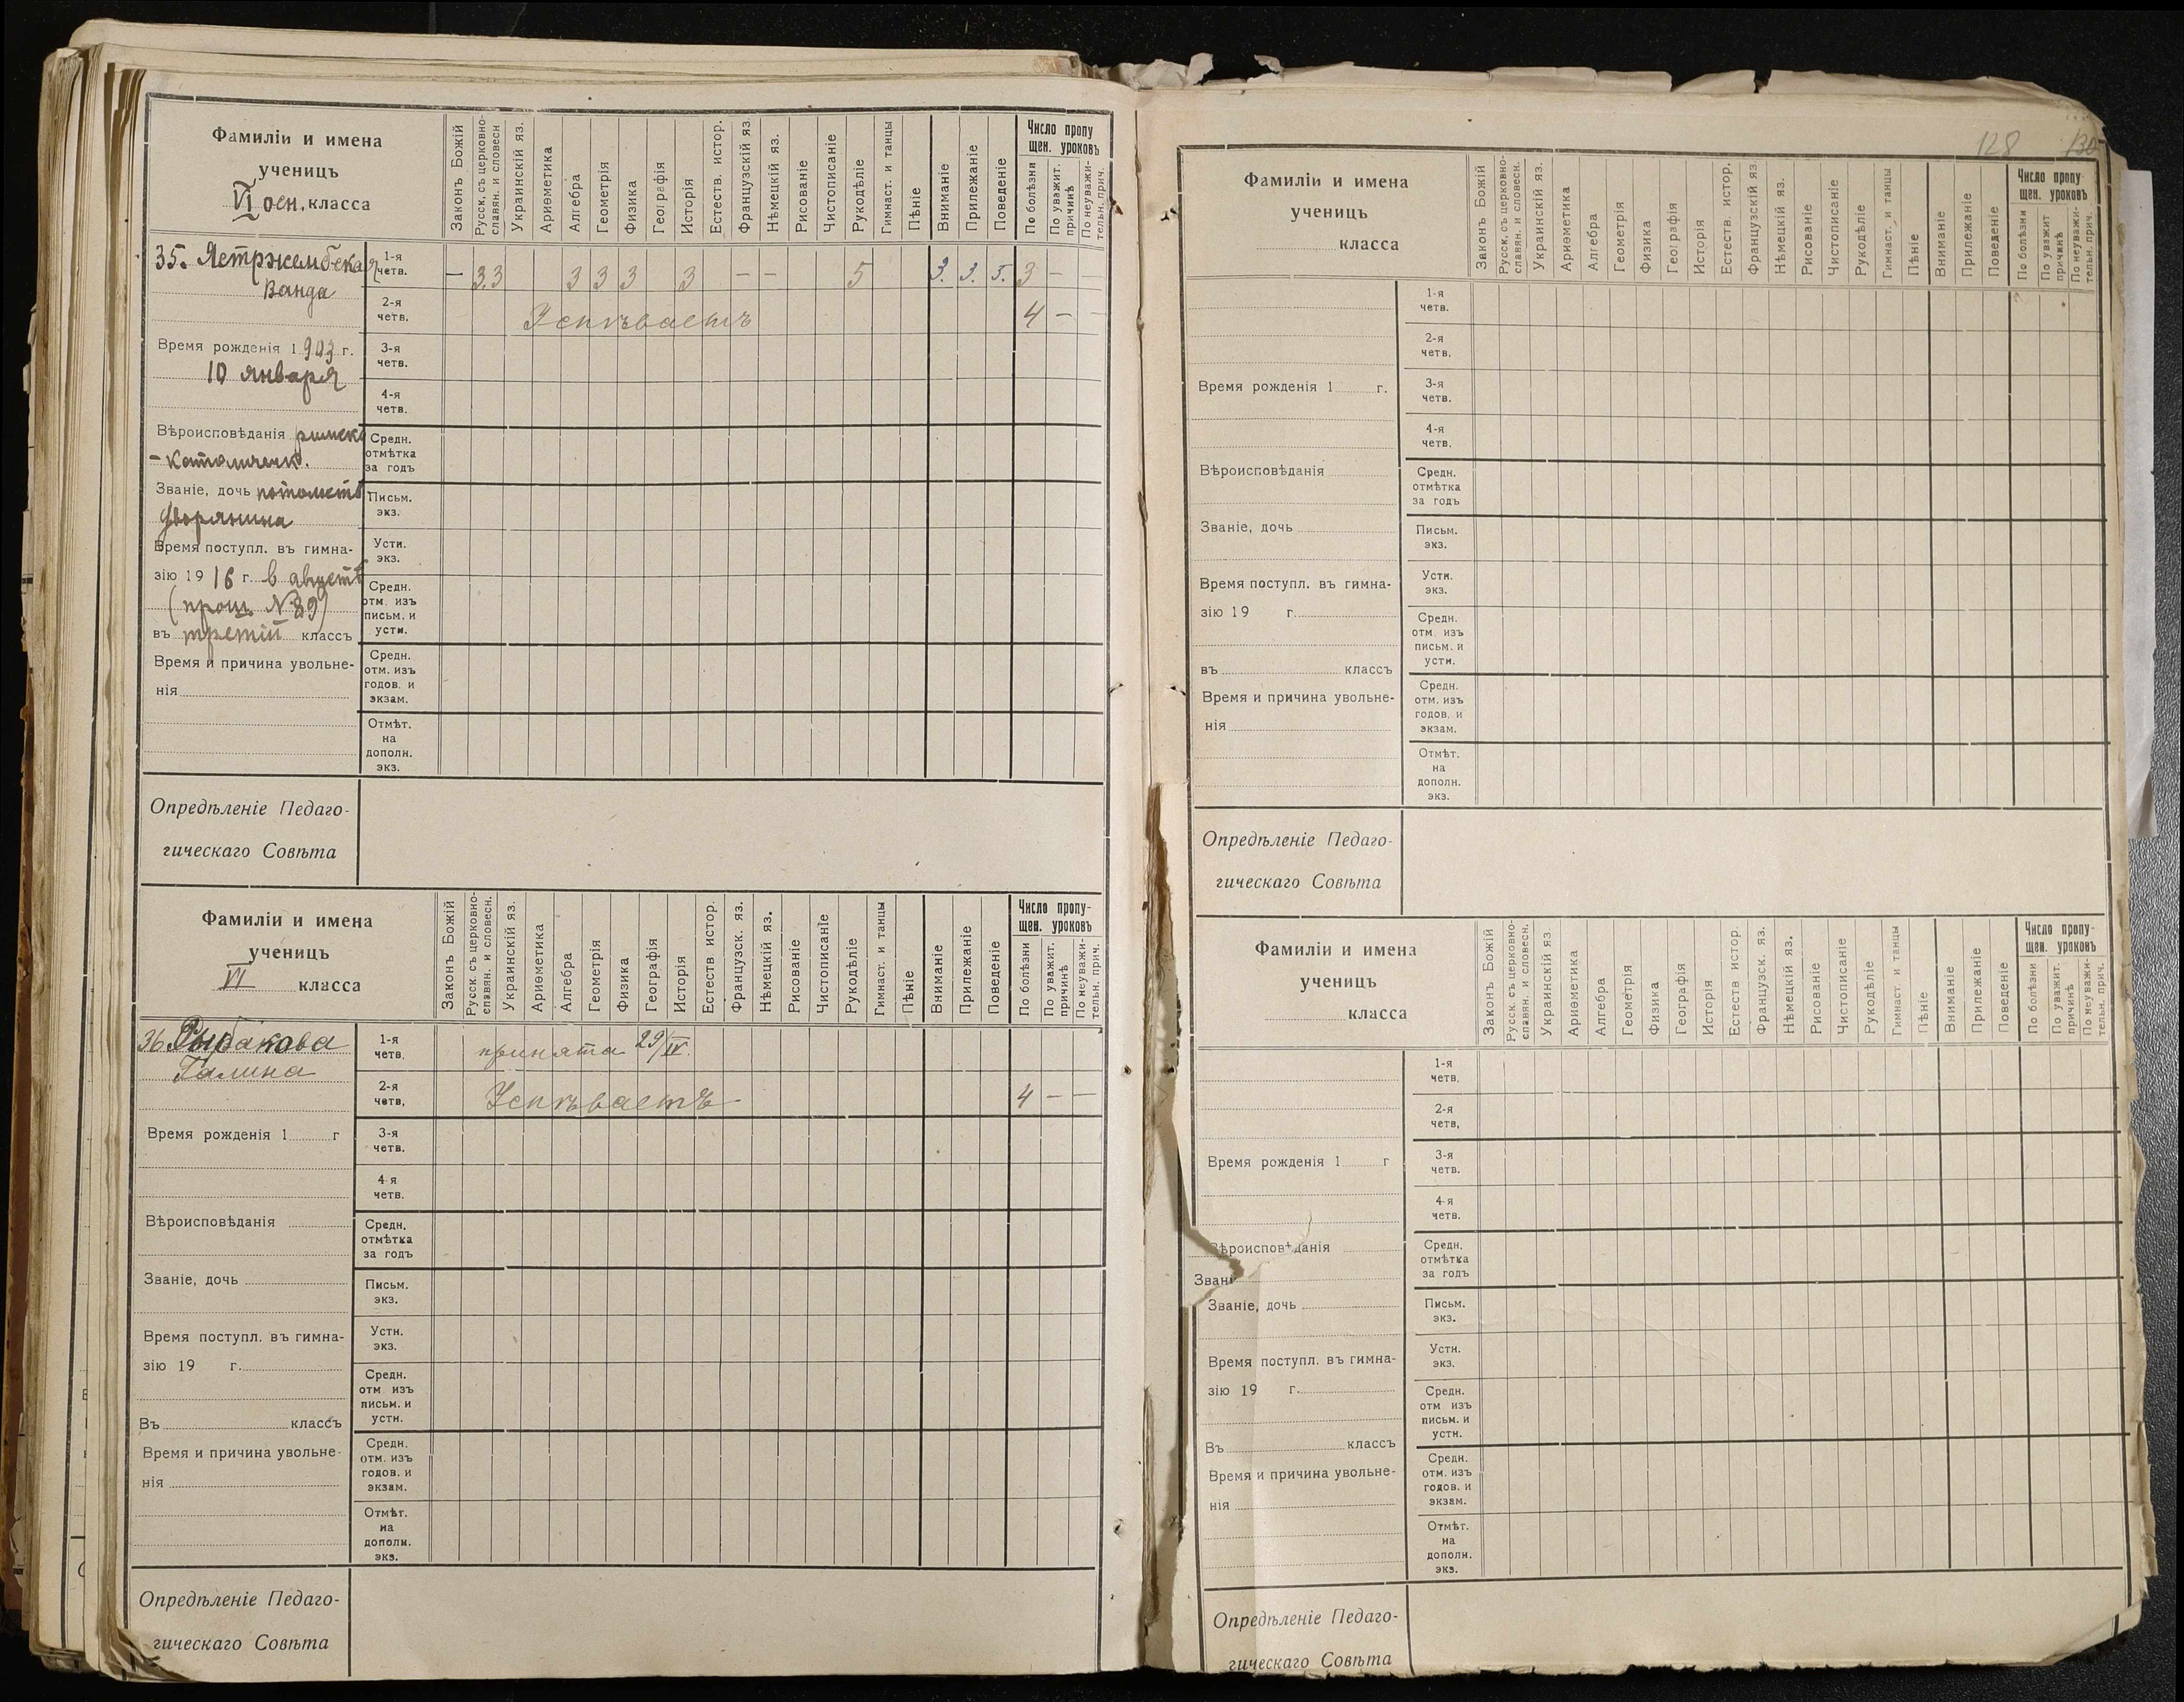 Фамиліи и имена
ученицъ
VI осн. класса
Законъ Божій
Русск. съ церковно-
славян. и словесн
Украинскій яз.
Ариѳметика
Алгебра
Геометрія
Физика
Географія
Исторія
Естеств. истор.
Французскій яз
Нѣмецкій яз.
Рисованіе
Чистописаніе
Рукодѣліе
Гимнаст. и танцы
Пѣніе
Вниманіе
Прилежаніе
Поведеніе
Число пропу
щен. уроковъ
По болѣзни
По уважит.
причинѣ
По неуважи-
тельн. прич.
35. Ястржембская
Ванда
1-я
четв.
— 3.3 3 3 3 3 — — 5 3. 3. 5. 3 — —
2-я
четв.
Успѣваетъ 4 — —
Время рожденія 1903 г.
10 января
3-я
четв.
4-я
четв.
Вѣроисповѣданія римско
-католическ.
Средн.
отмѣтка
за годъ
Званіе, дочь потомств
дворянина
Письм.
экз.
Время поступл. въ гимна-
зію 1916 г. в августѣ
(прош. № 89)
въ третій классъ
Устн.
экз.
Средн.
отм. изъ
письм. и
устн.
Время и причина увольне-
нія
Средн.
отм. изъ
годов. и
экзам.
Отмѣт.
на
дополн.
экз.
Опредѣленіе Педаго-
гическаго Совѣта
Фамиліи и имена
ученицъ
VI класса
Законъ Божій
Русск. съ церковно-
славян. и словесн.
Украинскій яз.
Ариѳметика
Алгебра
Геометрія
Физика
Географія
Исторія
Естеств истор.
Французск. яз.
Нѣмецкій яз.
Рисованіе
Чистописаніе
Рукодѣліе
Гимнаст. и танцы
Пѣніе
Вниманіе
Прилежаніе
Поведеніе
Число пропу-
щен. уроковъ
По болѣзни
По уважит.
причинѣ
По неуважи-
тельн. прич.
36. Рыбакова
Галина
1-я
четв.
принята 29/IV.
2-я
четв,
Успѣваетъ 4 — —
Время рожденія 1 г
3-я
четв.
4 я
четв.
Вѣроисповѣданія
Средн.
отмѣтка
за годъ
Званіе, дочь
Письм.
экз.
Время поступл. въ гимна-
зію 19 г.
Устн.
экз.
Средн.
отм изъ
письм. и
устн.
Въ классъ
Время и причина увольне-
нія
Средн.
отм. изъ
годов. и
экзам.
Отмѣт.
на
дополн.
экз.
Опредѣленіе Педаго-
гическаго Совѣта
128 130
Фамиліи и имена
ученицъ
класса
Законъ Божій
Русск. съ церковно-
славян. и словесн.
Украинскій яз.
Ариѳметика
Алгебра
Геометрія
Физика
Географія
Исторія
Естеств. истор.
Французскій яз
Нѣмецкій яз.
Рисованіе
Чистописаніе
Рукодѣліе
Гимнаст. и танцы
Пѣніе
Вниманіе
Прилежаніе
Поведеніе
Число пропу-
щен. уроковъ
По болѣзни
По уважит
причинѣ
По неуважи-
тельн. прич.
1-я
четв.
2-я
четв.
Время рожденія 1 г.
3-я
четв.
4-я
четв.
Вѣроисповѣданія
Средн.
отмѣтка
за годъ
Званіе, дочь
Письм.
экз.
Время поступл. въ гимна-
зію 19 г.
Устн.
экз.
Средн.
отм. изъ
письм. и
устн.
въ классъ
Время и причина увольне-
нія
Средн.
отм. изъ
годов. и
экзам.
Отмѣт.
на
дополн.
экз.
Опредѣленіе Педаго-
гическаго Совѣта
Фамиліи и имена
ученицъ
класса
Законъ Божій
Русск. съ церковно-
славян. и словесн.
Украинскій яз
Ариѳметика
Алгебра
Геометрія
Физика
Географія
Исторія
Естеств истор.
Французск. яз.
Нѣмецкій яз.
Рисованіе
Чистописаніе
Рукодѣліе
Гимнаст. и танцы
Пѣніе
Вниманіе
Прилежаніе
Поведеніе
Число пропу-
щен. уроковъ
По болѣзни
По уважит.
причинѣ
По неуважи-
тельн. прич.
1-я
четв,
2-я
четв,
Время рожденія 1 г
3-я
четв.
4-я
четв.
Вѣроисповѣданія
Средн.
отмѣтка
за годъ
Звані
Званіе, дочь
Письм.
экз.
Время поступл. въ гимна-
зію 19 г.
Устн.
экз.
Средн.
отм изъ
письм. и
устн.
Въ классъ
Время и причина увольне-
нія
Средн.
отм. изъ
годов. и
экзам.
Отмѣт.
на
дополн.
экз.
Опредѣленіе Педаго-
гическаго Совѣта